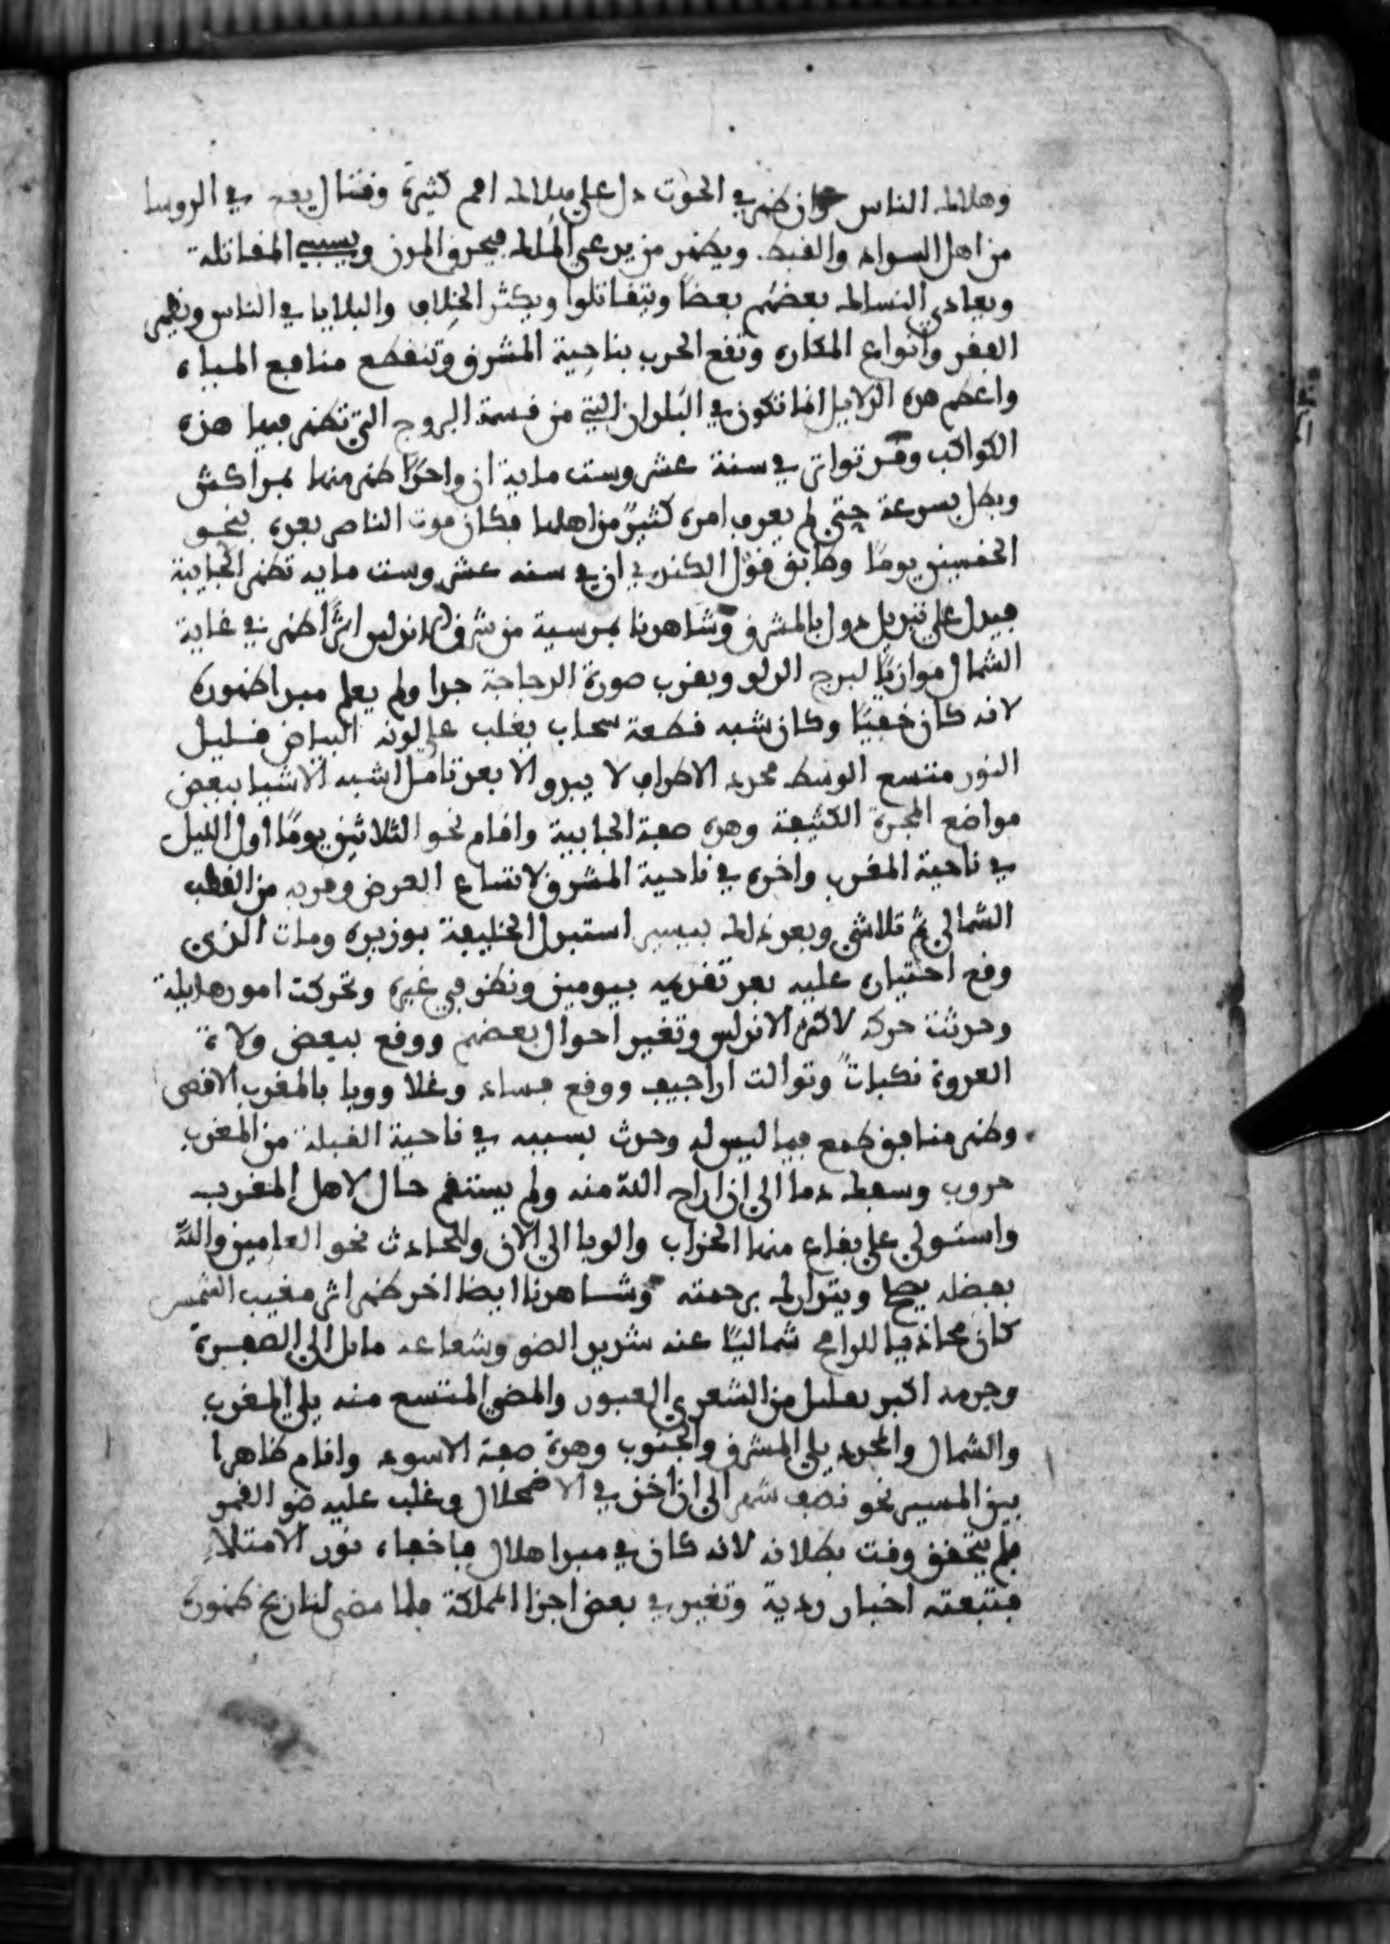 وهلاك الناس وان ظهر في الحوت دل على هلاك امم كثيرة وقتال يقع في الروسا
من اهل السواد والقبط ويظهر من يدعي الملك فيحرق المدن وبسببه المقاتلة
ويعادي النساك بعضهم بعضا ويتقاتلوا ويكثر الخلاف والبلايا في الناس ويظهر
الفقر وانواع المكاره وتقع الحرب بناحية المشرق وتنقطع منافع المياه
واعظم هذه الدلايل انما تكون في البلدان التي من قسمة البروج التي تظهر فيها هذه
الكواكب وقد تواتر في سنة عشر وست ماية ان واحدًا ظهر منها بمراكش
وبطل بسرعة حتى لم يعرف امره كثيرٌ من اهلها فكان موت الناصر بعده بنحو
الخمسين يومًا وطابق قول الكندي ان في سنه عشر وست مايه تظهر الجابية
فيدل على تبديل دول بالمشرق وشاهدنا بمرسية من شرق الاندلس اثرًا ظهر في غاية
الشمال موازيًا لبرج الدلو وبقرب صورة الدجاجة جدا ولم يعلم مبدا ظهوره
لانه كان خفيًا وكان شبه قطعة سحاب يغلب على لونه البياض قليل
النور متسع الوسط محدد الاطراف لا يبدو الا بعد تامل اشبه الاشيا ببعض
مواضع المجرة الكثيفة وهذه صفة الجابية واقام نحو الثلاثين يومًا اول الليل
في ناحية المغرب واخره في ناحية المشرق لاتساع العرض وقربه من القطب
الشمالي ثم تلاشى وبعد ذلك بيسير استبدل الخليفة بوزيره ومات الذي
وقع اختياره عليه بعد تقديمه بيومين ونظر في غيره وتحركت امور هايلة
وحدثت حركه لاكثر الاندلس وتغير احوال بعضهم ووقع ببعض ولاة
العدوة نكباتٌ وتوالت اراجيف ووقع فساد وغلا ووبا بالمغرب الاقصى
وظهر منافق طمع فيما ليس له وحدث بسببه في ناحية القبلة من المغرب
حروب وسفك دما الى ان اراح الله منه ولم يستقم حال لاهل المغرب
واستولى على بقاع منها الخراب والوبا الى الان وللحادث نحو العامين والله
بفضله يصلحها ويتدارك برحمته وشاهدنا ايضا اخر ظهر اثر مغيب الشمس
كان محاذيا للرامح شماليًا عنه شديد الضو وشعاعه مايل الى الصفرة
وجرمه اكبر بقليل من الشعرى العبور والمضي المتسع منه يلي المغرب
والشمال والمحدد يلي المشرق والجنوب وهذه صفة الاسود واقام ظاهرا
بين المسير نحو نصف شهر الى ان اخذ في الاضمحلال وغلب عليه ضو القمر
فلم يتحقق وقت بطلانه لانه كان في مبدا هلال فاخفاه نور الامتلاء
فتبعته اخبار ردية وتغير في بعض اجزا المملكة فلما مضى لتاريخ ظهوره